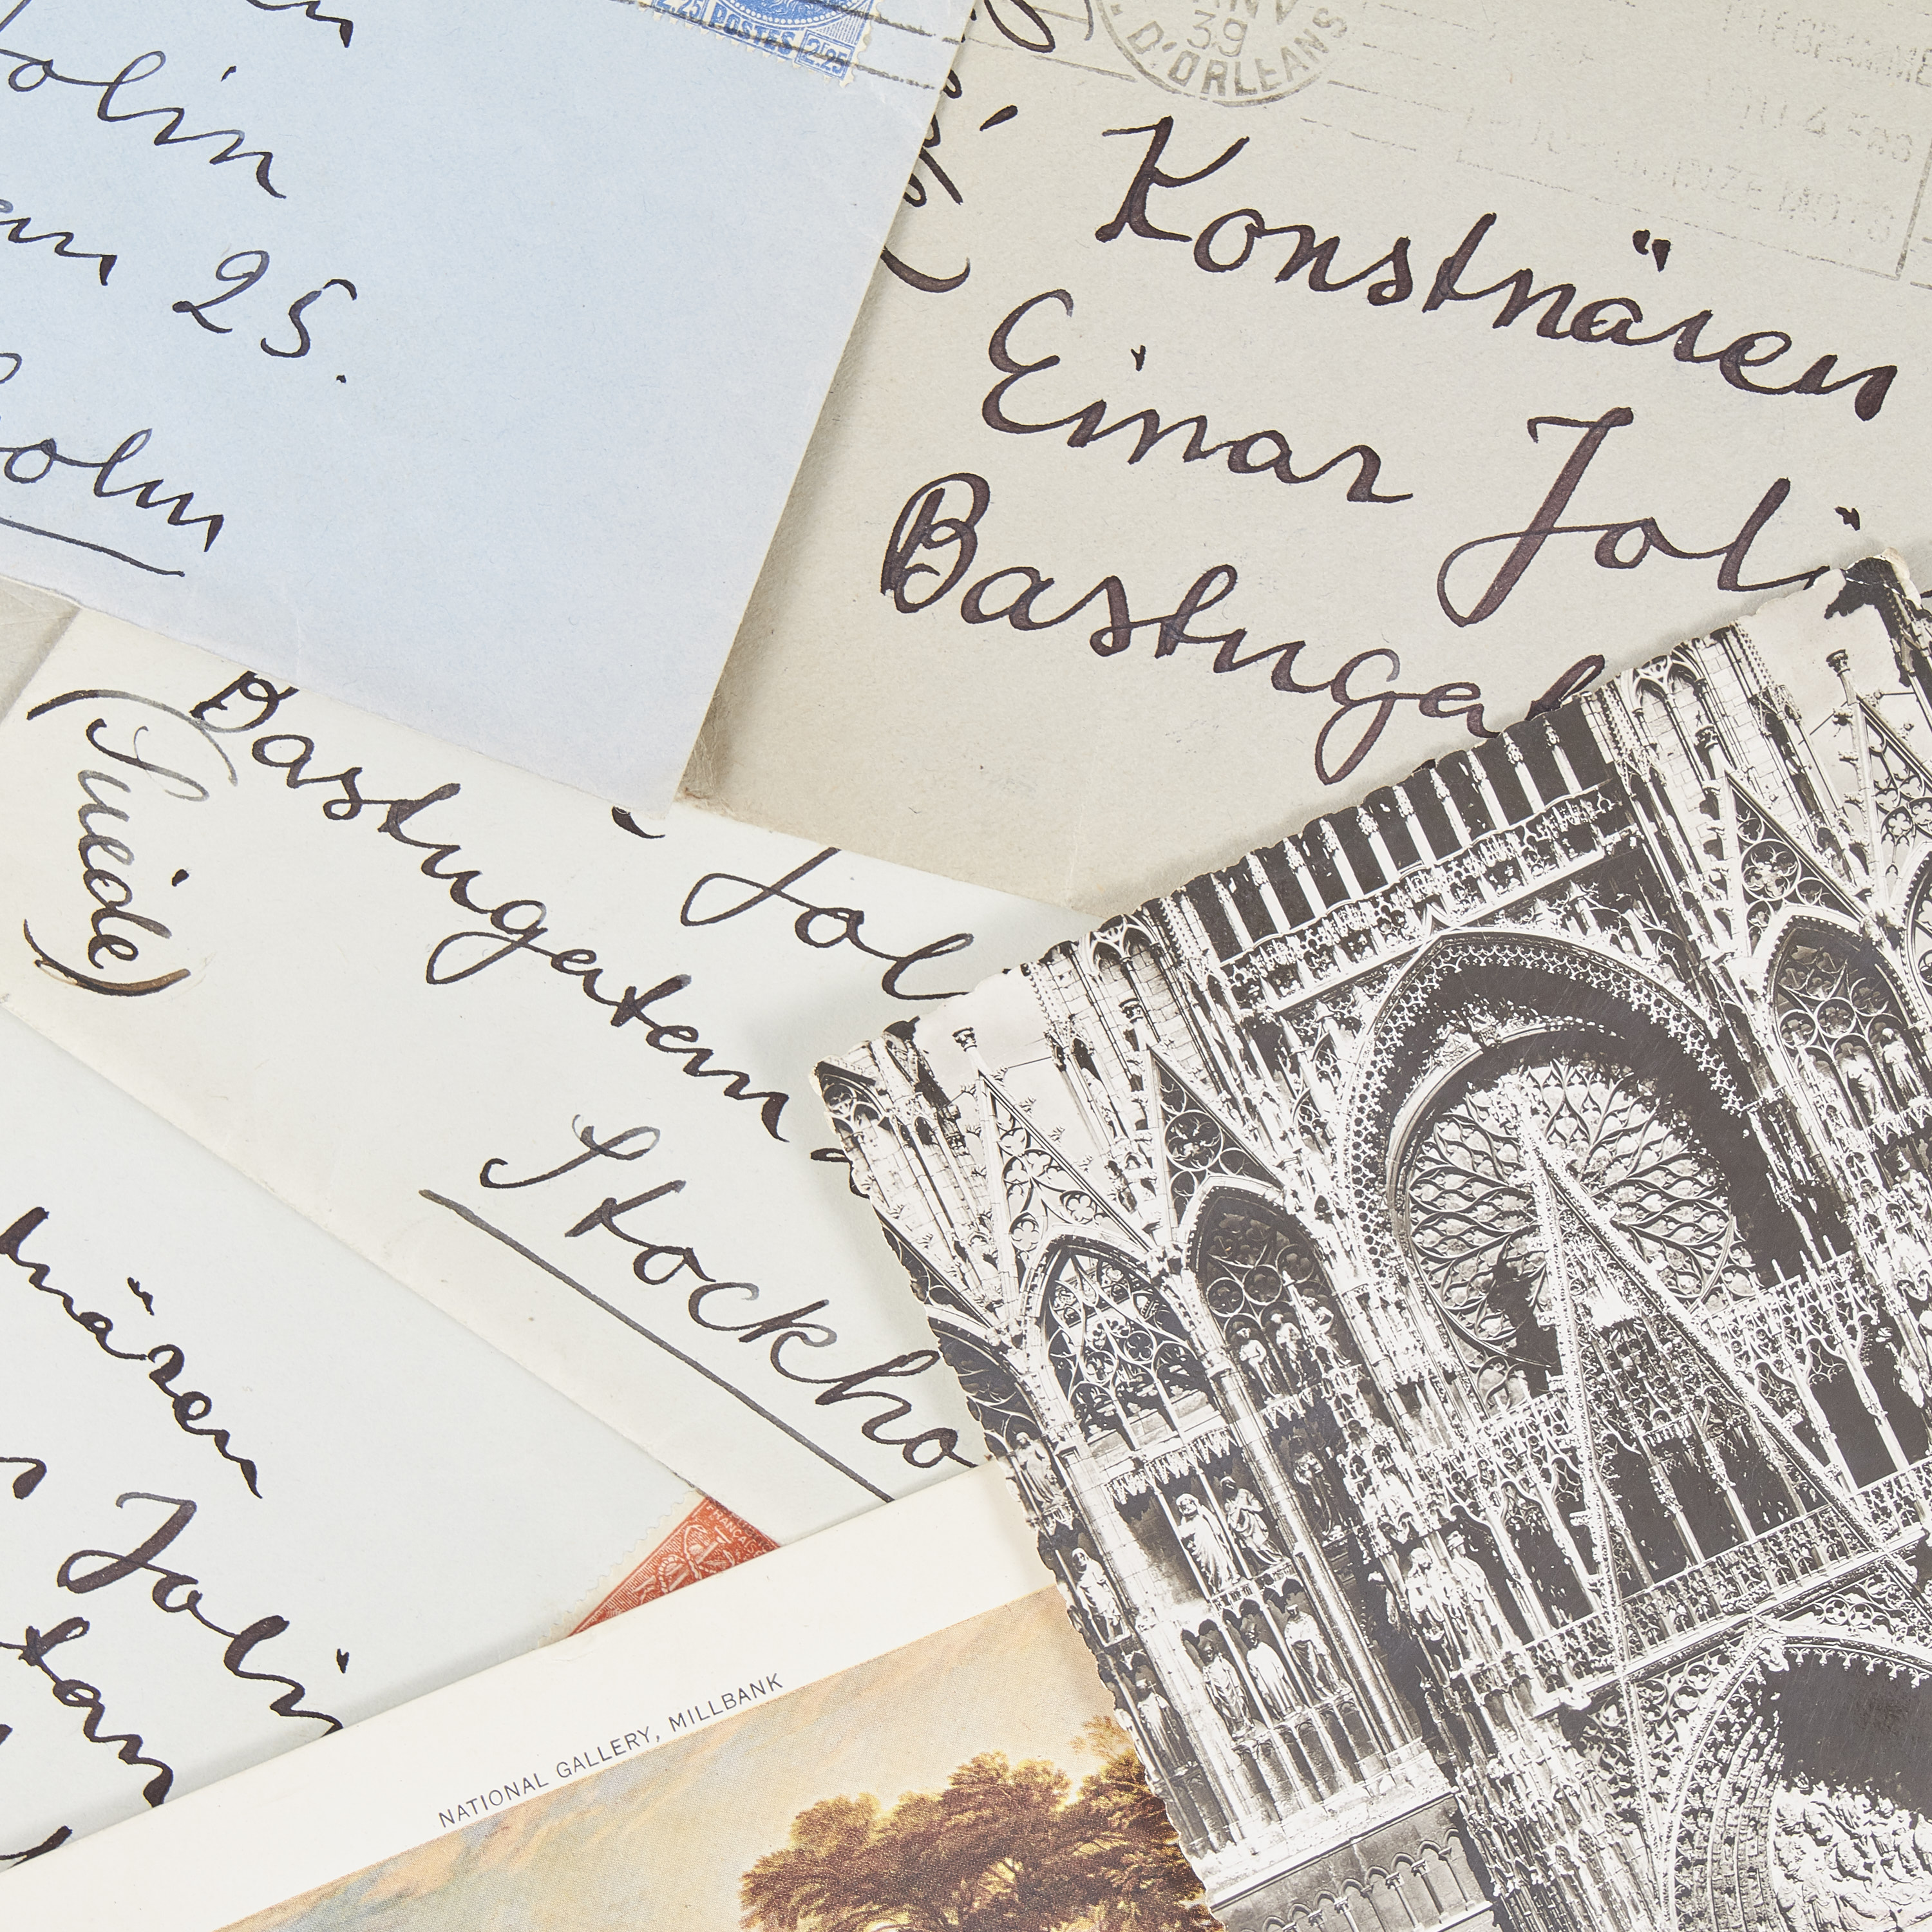 2.25 POSTES 2.25
olin
25.
olm
39
D'ORLEANS
Konstnären
Einar Joli
Bastugat
(Suède)
Jol
Bastugatan
Stockho
nären
Jolin
tan
FRANÇAISE
NATIONAL GALLERY, MILLBANK